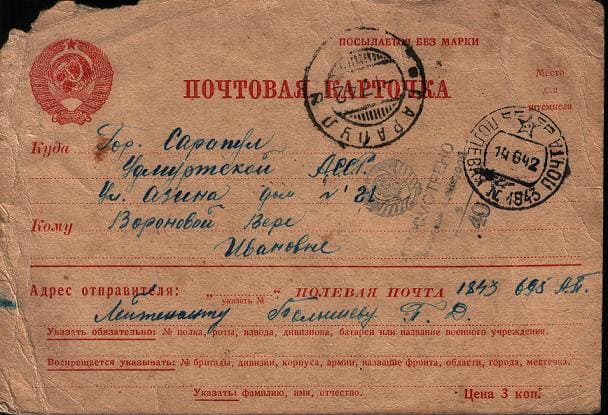 ПОСЫЛАЕТСЯ БЕЗ МАРКИ
ПОЧТОВАЯ КАРТОЧКА
Место
для
штемпеля
САРАПУЛ
ПОЛЕВАЯ ПОЧТА
14 6 42
№ 1843
Куда Гор. Сарапул
Удмуртской АССР.
ул. Азина дом № 21
ПРОСМОТРЕНО
Кому Вороновой Вере
Ивановне
Адрес отправителя: „ “ ПОЛЕВАЯ ПОЧТА 1843 695 А.П.
указать №
Лейтенанту Г. Д.
Указать обязательно: № полка, роты, взвода, дивизиона, батареи или название военного учреждения.
Воспрещается указывать: № бригады, дивизии, корпуса, армии, название фронта, области, города, местечка.
Указать: фамилию, имя, отчество.
Цена 3 коп.